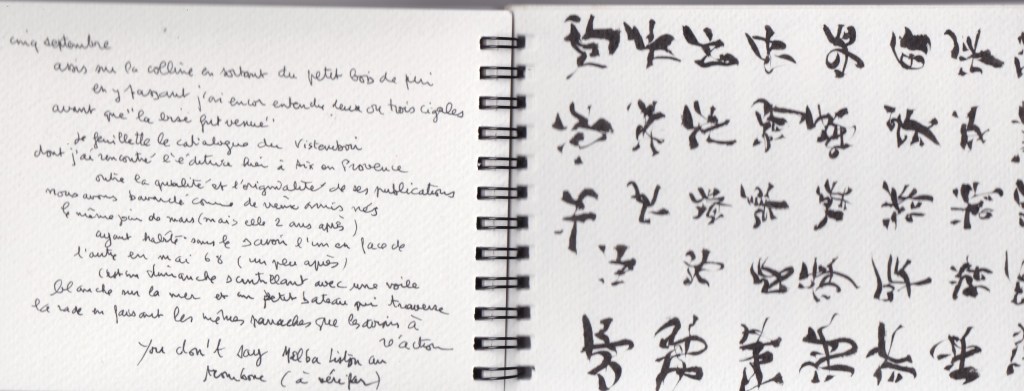 cinq septembre
assis sur la colline en sortant du petit bois de pin
en y passant j'ai encor entendu deux ou trois cigales
avant que "la bise fut venue"
Je feuillette le catalogue du Vistemboir
dont j'ai rencontré l'éditeur hier à Aix en Provence
outre la qualité et l'originalité de ses publications
nous avons bavardé comme de vieux amis nés
le même jour de mars (mais cela 2 ans après)
ayant habité sans le savoir l'un en face de
l'autre en mai 68 (un peu après)
dimanche scintillant avec une voile
blanche sur la mer et un petit bateau qui traverse
la rade en faisant les mêmes panaches que les avions à
réaction
You don't say Melba Liston au
trombone (à vérifier)